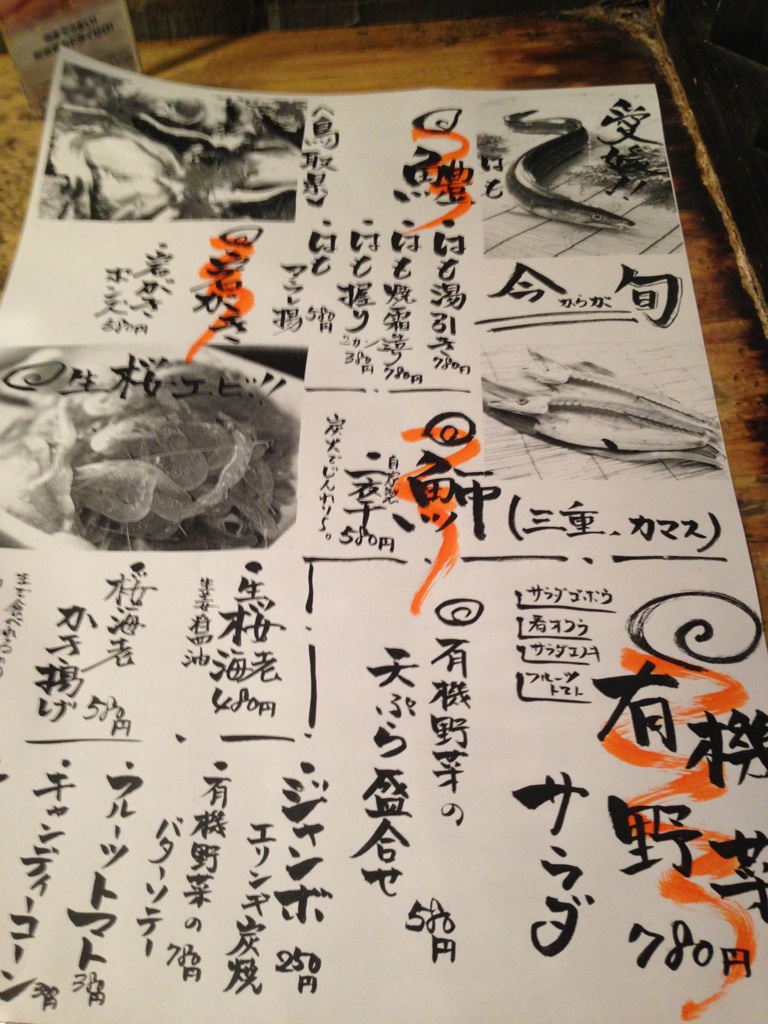 愛媛!!
今からが旬
鱧
はも
・はも湯引き 780円
・はも焼霜造り 780円
・はも握り 2カン 380円
・はも
アラレ揚 580円
〈鳥取県〉
岩がき
・岩がき
ポン酢 580円
生桜エビ!!
(三重、カマス)
自家製
一夜干 580円
炭火でじんわり〜。
・生桜海老 480円
生姜醤油
・桜海老
かき揚げ 580円
サラダゴボウ
サラダエノキ
フルーツ
トマト
有機野菜
サラダ 780円
有機野菜の
天ぷら盛合せ 580円
・ジャンボ
エリンギ炭焼 250円
・有機野菜の
バターソテー 780円
・フルーツトマト 380円
・キャンディーコーン